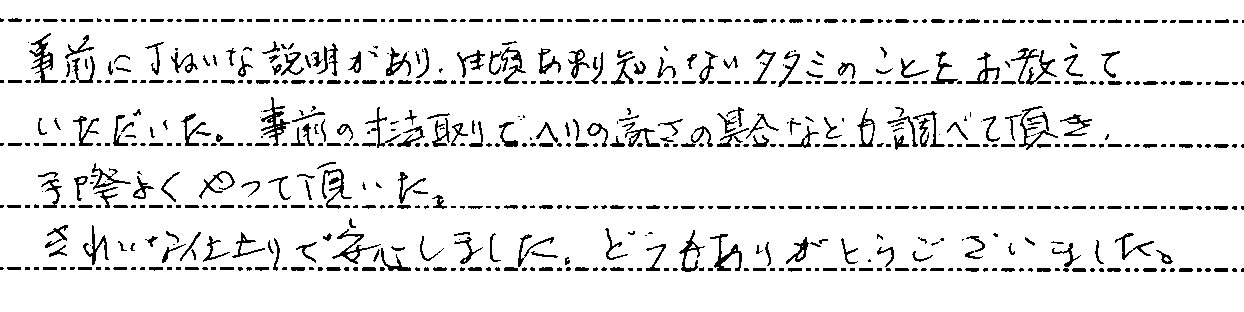 事前に丁ねいな説明があり、日頃あまり知らないタタミのことをお教えて
いただいた。事前の寸法取りで、ヘリの高さの具合なども調べて頂き、
手際よくやって頂いた。
きれいな仕上りで安心しました。どうもありがとうございました。